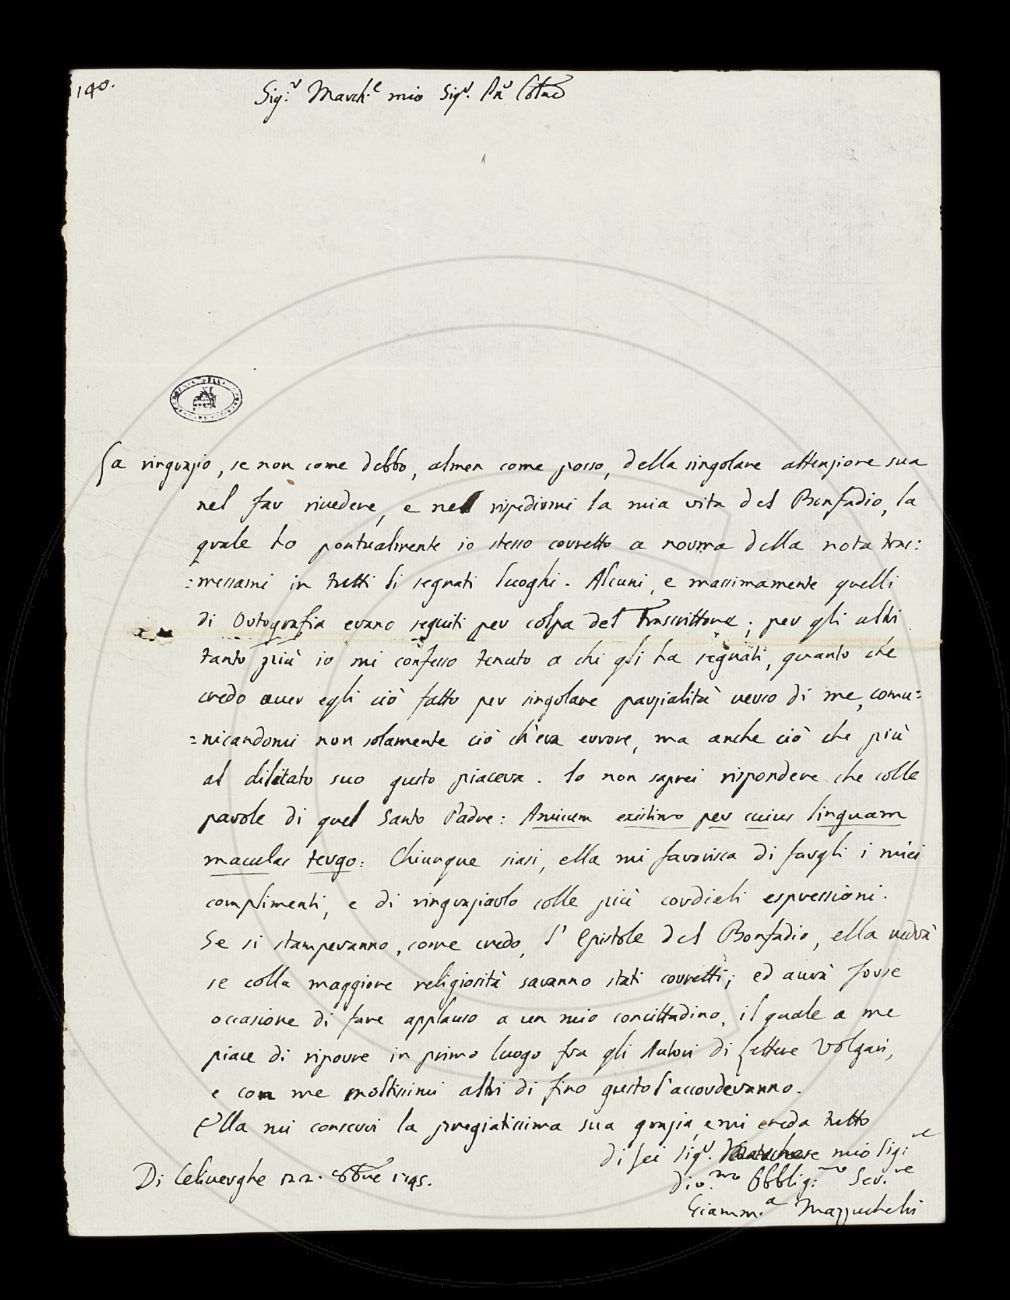 140.
Sig.r March.e mio Sig.r Pr.n Col.mo
La ringrazio, se non come debbo, almen come posso, della singolare attenzione sua
nel far rivedere, e nel rispedirmi la mia vita del Bonfadio, la
quale ho pontualmente io stesso corretto a norma della nota tras:
:messami in tutti li segnati luoghi. Alcuni, e massimamente quelli
di Ortografia erano seguiti per colpa del Trascrittore; per gli altri
tanto più io mi confesso tenuto a chi gli ha segnati, quanto che
credo aver egli ciò fatto per singolare parzialità verso di me, comu=
=nicandomi non solamente ciò ch'era errore, ma anche ciò che più
al dilicato suo gusto piaceva. Io non saprei rispondere che colle
parole di quel Santo Padre: Amicum existimo per cuius linguam
maculas tergo: Chiunque siasi, ella mi favorisca di fargli i miei
complimenti, e di ringraziarlo colle più cordiali espressioni.
Se si stamperanno, come credo, l'Epistole del Bonfadio, ella vedrà
se colla maggiore religiosità saranno stati corretti; ed avrà forse
occasione di fare applauso a un mio concittadino, il quale a me
piace di riporre in primo luogo fra gli Autori di Lettere Volgari,
e con me moltissimi altri di fino gusto l'accorderanno.
Ella mi conservi la pregiatissima sua grazia, e mi creda tutto
di Lei Sig.r mio Sig.re
Di Ciliverghe 22. 8bre 1745.
Div.mo Obblig.mo Ser.re
Giamm.a Mazzuchelli